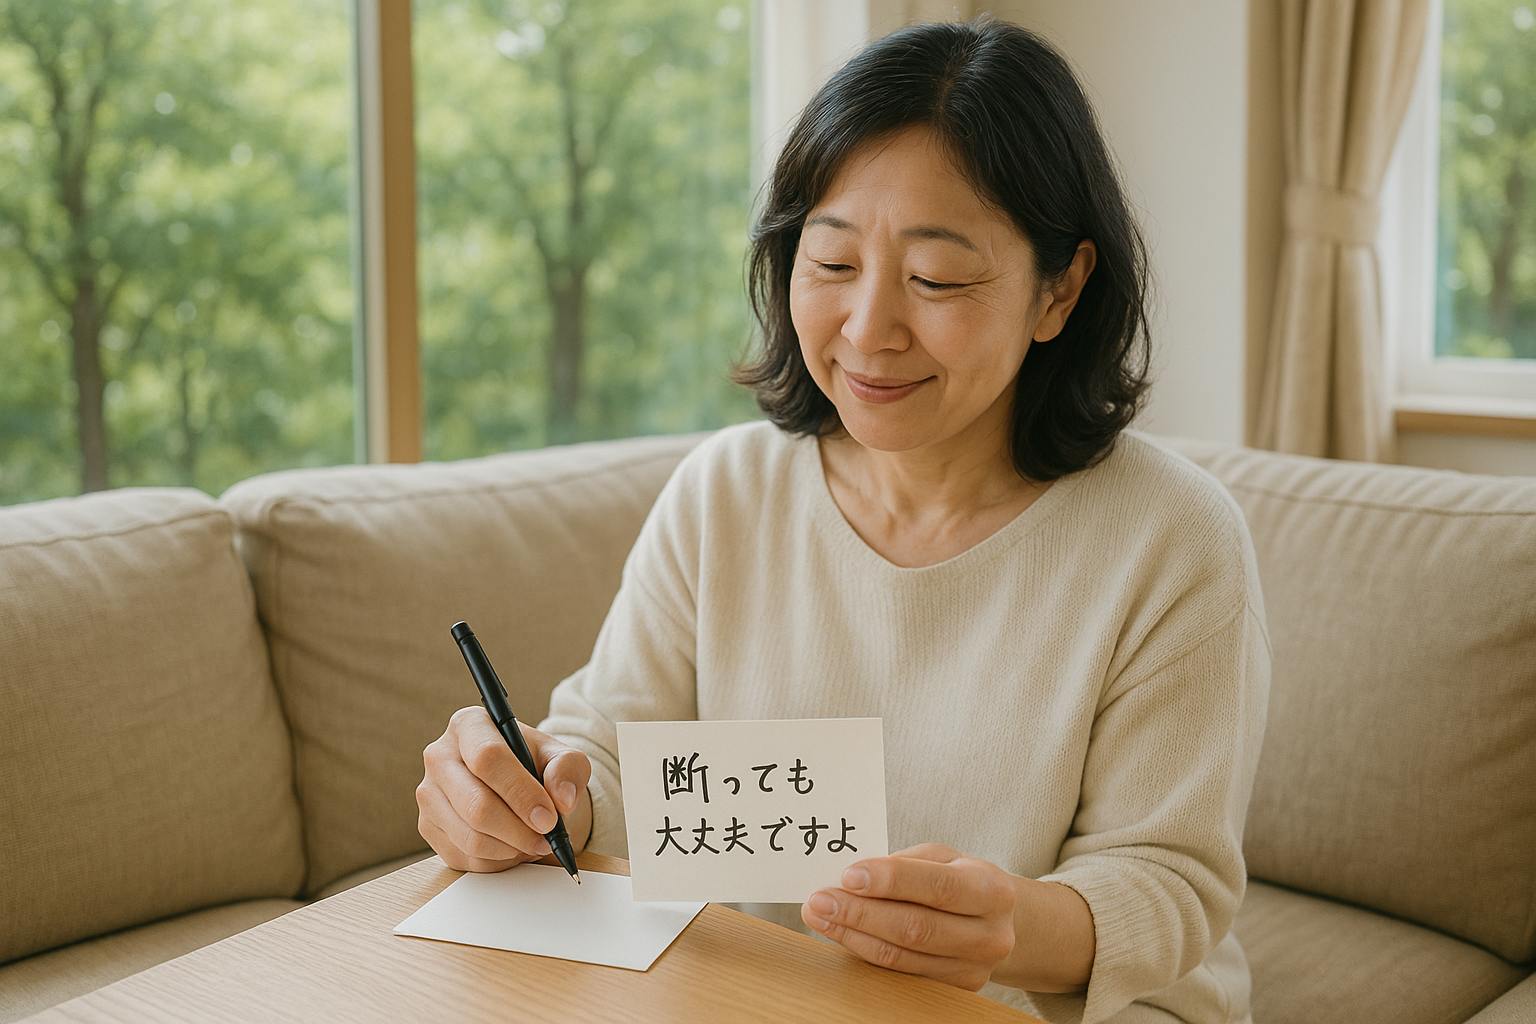 断っても
大丈夫ですよ